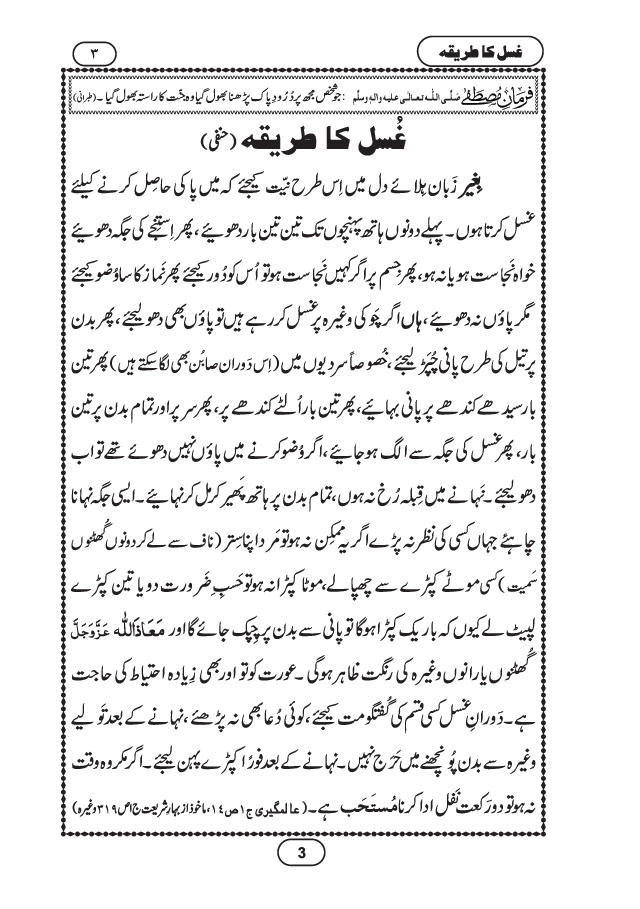 غسل کا طریقہ
۳
فرمانِ مصطفٰے صلَّی اللہ تعالٰی علیہ والہٖ وسلَّم : جو شخص مجھ پر دُرُودِ پاک پڑھنا بھول گیا وہ جنّت کا راستہ بھول گیا ۔ (طبرانی)
غُسل کا طریقہ (حنفی)
بغیر زَبان ہِلائے دل میں اِس طرح نیّت کیجئے کہ میں پاکی حاصِل کرنے کیلئے
غسل کرتا ہوں ۔ پہلے دونوں ہاتھ پہنچوں تک تین تین بار دھوئیے ، پھر اِستنجے کی جگہ دھوئیے
خواہ نَجاست ہو یا نہ ہو، پھر جسم پر اگر کہیں نَجاست ہو تو اُس کو دُور کیجئے پھر نَماز کا سا وُضو کیجئے
مگر پاؤں نہ دھوئیے ، ہاں اگر چوکی وغیرہ پر غسل کر رہے ہیں تو پاؤں بھی دھو لیجئے ، پھر بدن
پر تیل کی طرح پانی چُپَڑ لیجئے ، خُصوصاً سردیوں میں (اِس دَوران صابُن بھی لگا سکتے ہیں) پھر تین
بار سیدھے کندھے پر پانی بہائیے، پھر تین بار اُلٹے کندھے پر، پھر سر پر اور تمام بدن پر تین
بار، پھر غسل کی جگہ سے الگ ہو جائیے ، اگر وُضو کرنے میں پاؤں نہیں دھوئے تھے تو اب
دھو لیجئے ۔ نَہانے میں قِبلہ رُخ نہ ہوں، تمام بدن پر ہاتھ پَھیر کر مَل کر نہائیے ۔ ایسی جگہ نہانا
چاہئے جہاں کسی کی نظر نہ پڑے اگر یہ ممکِن نہ ہو تو مَرد اپنا سِتر (ناف سے لے کر دونوں گُھٹنوں
سَمیت) کسی موٹے کپڑے سے چھپالے ، موٹا کپڑا نہ ہو تو حَسبِ ضَرورت دو یا تین کپڑے
لپیٹ لے کیوں کہ باریک کپڑا ہوگا تو پانی سے بدن پر چِپک جائے گا اور مَعَاذَاللہ عَزَّوَجَلَّ
گُھٹنوں یا رانوں وغیرہ کی رنگت ظاہر ہوگی ۔ عورت کو تو اور بھی زِیادہ احتیاط کی حاجت
ہے ۔ دَورانِ غسل کسی قسم کی گُفتگو مت کیجئے ، کوئی دُعا بھی نہ پڑھئے ، نہانے کے بعد تَولیے
وغیرہ سے بدن پُونچھنے میں حَرَج نہیں ۔ نہانے کے بعد فوراً کپڑے پہن لیجئے ۔ اگر مکروہ وقت
نہ ہو تو دو رَکعت نَفل ادا کرنا مُستَحَب ہے ۔ (عالمگیری ج۱ ص۱۴ ، ماخوذ از بہارِ شریعت ج۱ ص۳۱۹ وغیرہ)
3